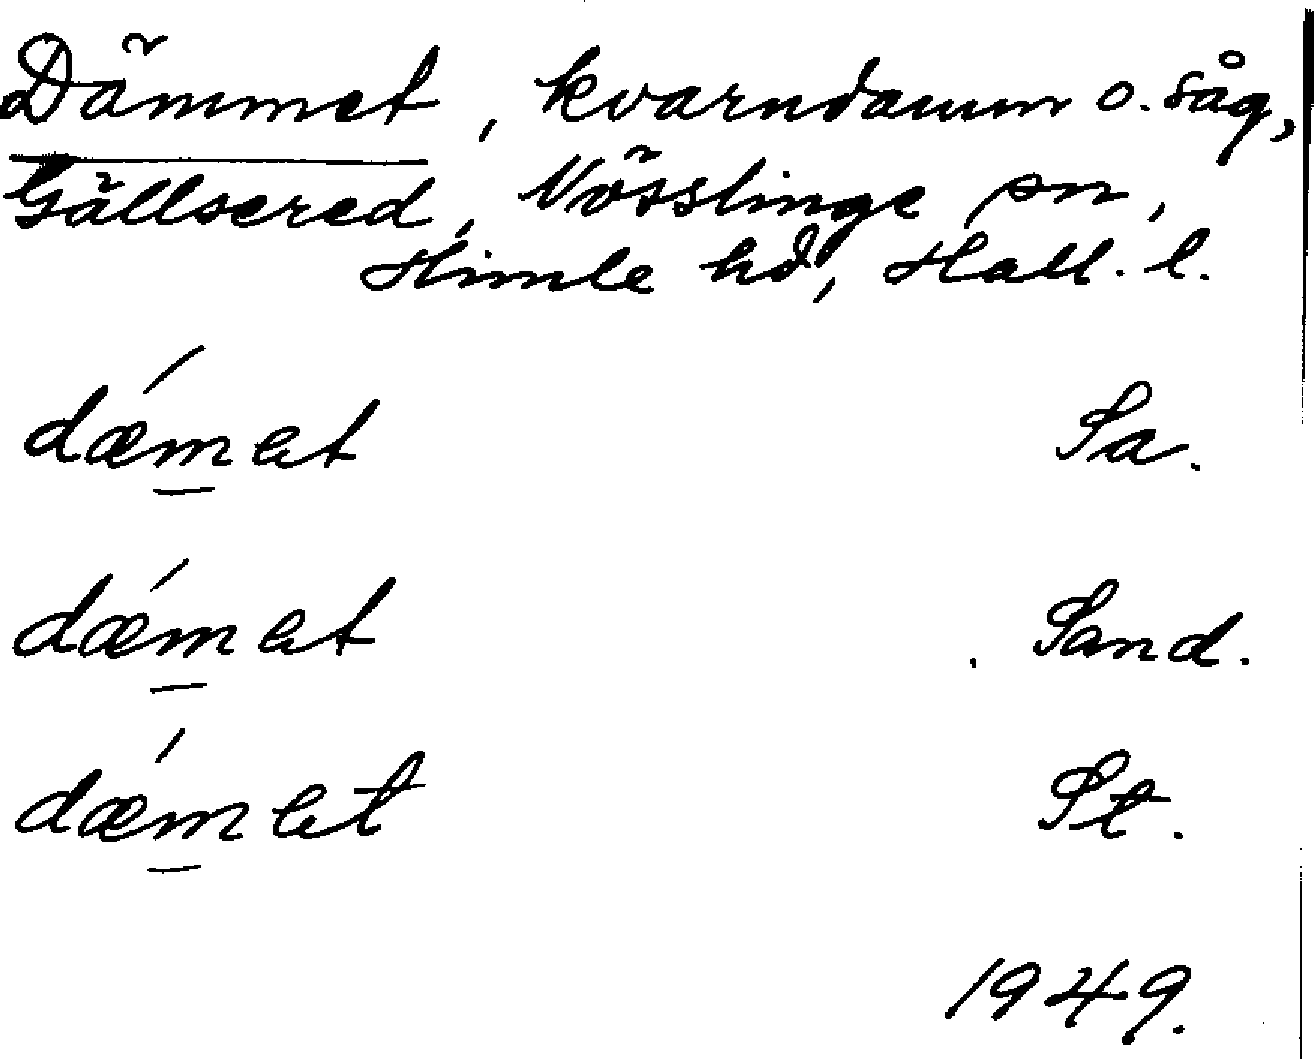 Dämmet, kvarndamm o. såg,
Gällsered, Nösslinge sn,
Himle hd, Hall. l.
dǽm̲et Sa.
dǽm̲et Sand.
dǽm̲et St.
1949.